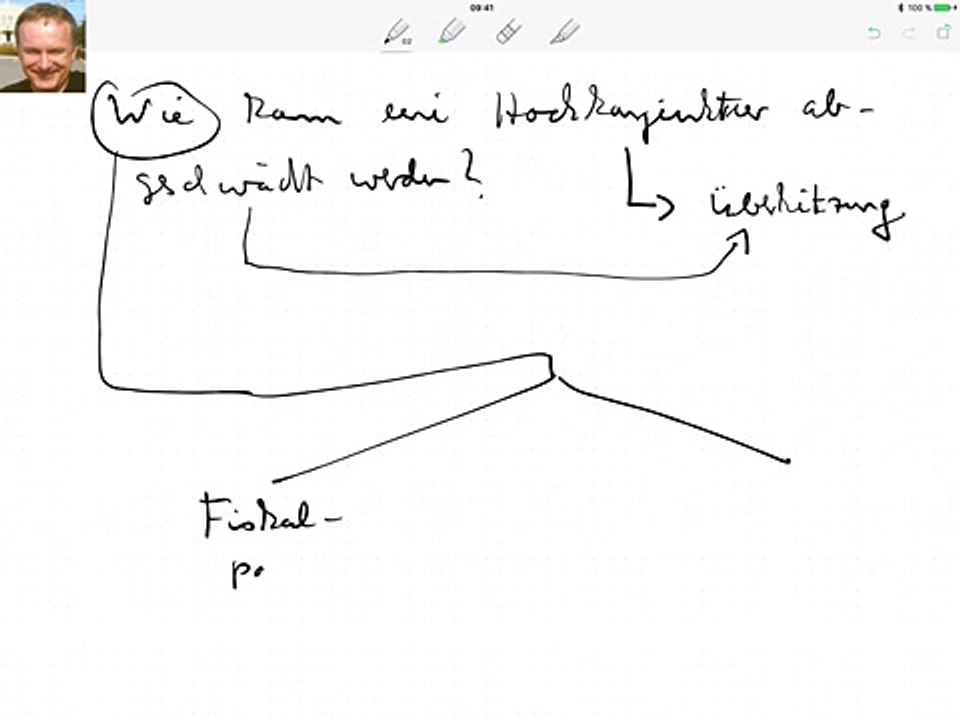 09:41
100 %
Wie kann eine Hochkonjunktur ab-
geschwächt werden?
Überhitzung
Fiskal-
po